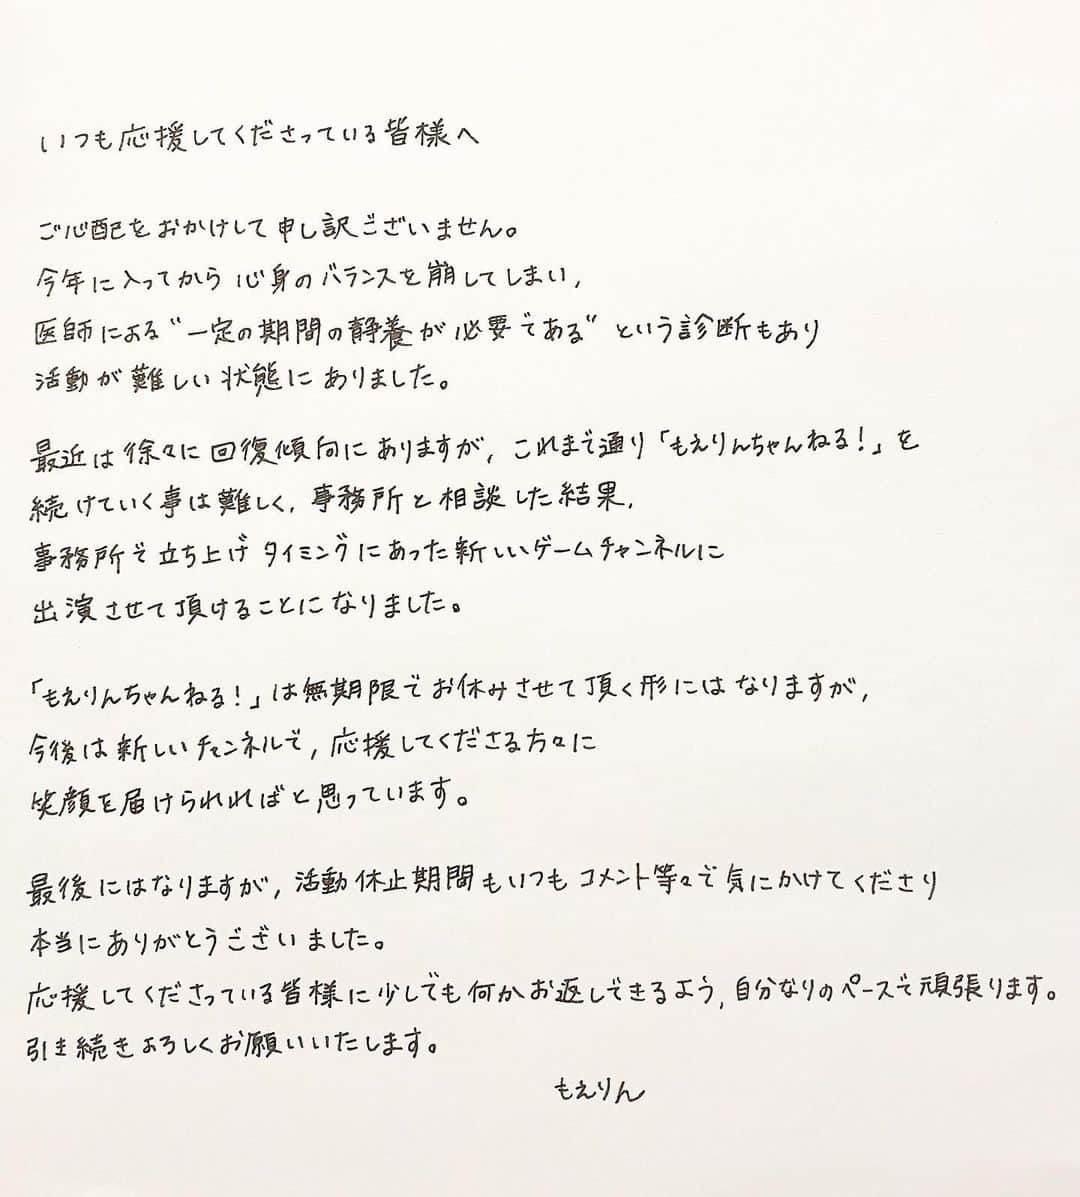 いつも応援してくださっている皆様へ
ご心配をおかけして申し訳ございません。
今年に入ってから心身のバランスを崩してしまい,
医師による"一定の期間の静養が必要である"という診断もあり
活動が難しい状態にありました。
最近は徐々に回復傾向にありますが,これまで通り「もえりんちゃんねる!」を
続けていく事は難しく,事務所と相談した結果,
事務所で立ち上げタイミングにあった新しいゲームチャンネルに
出演させて頂けることになりました。
「もえりんちゃんねる!」は無期限でお休みさせて頂く形にはなりますが,
今後は新しいチャンネルで,応援してくださる方々に
笑顔を届けられればと思っています。
最後にはなりますが,活動休止期間もいつもコメント等々で気にかけてくださり
本当にありがとうございました。
応援してくださっている皆様に少しでも何かお返しできるよう,自分なりのペースで頑張ります。
引き続きよろしくお願いいたします。
もえりん